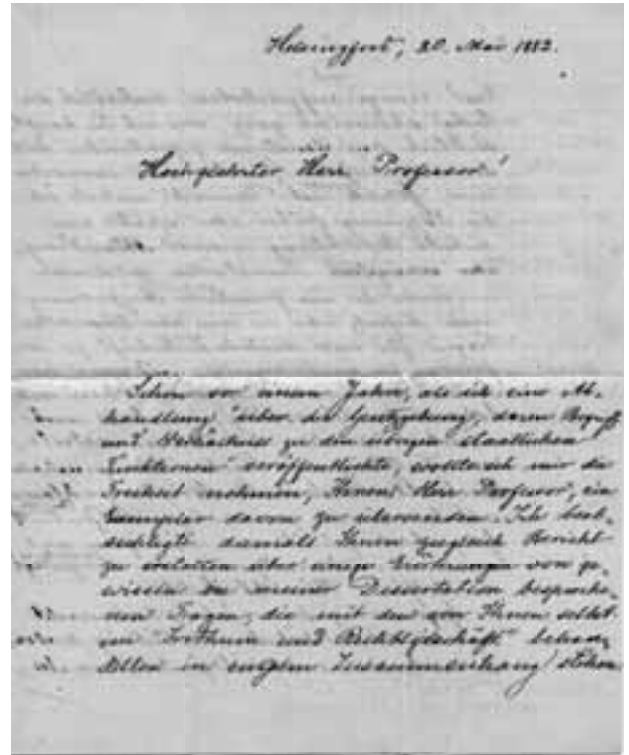 Helsingfors, 20. Mai 1882.
Hochgeehrter Herr Professor!
Schon vor einem Jahre, als ich eine Ab-
handlung "über die Gesetzgebung, deren Begriff
und Verhältniss zu den übrigen staatlichen
Funktionen" veröffentlichte, wollte ich mir die
Freiheit nehmen, Ihnen, Herr Professor, ein
Exemplar davon zu übersenden. Ich beab-
sichtigte damals Ihnen zugleich Bericht
zu erstatten über einige Erörterungen von ge-
wissen in meiner Dissertation besproche-
nen Fragen, die mit den von Ihnen selbst
im "Irrthum und Rechtsgeschäft" behan-
delten in engem Zusammenhang stehen